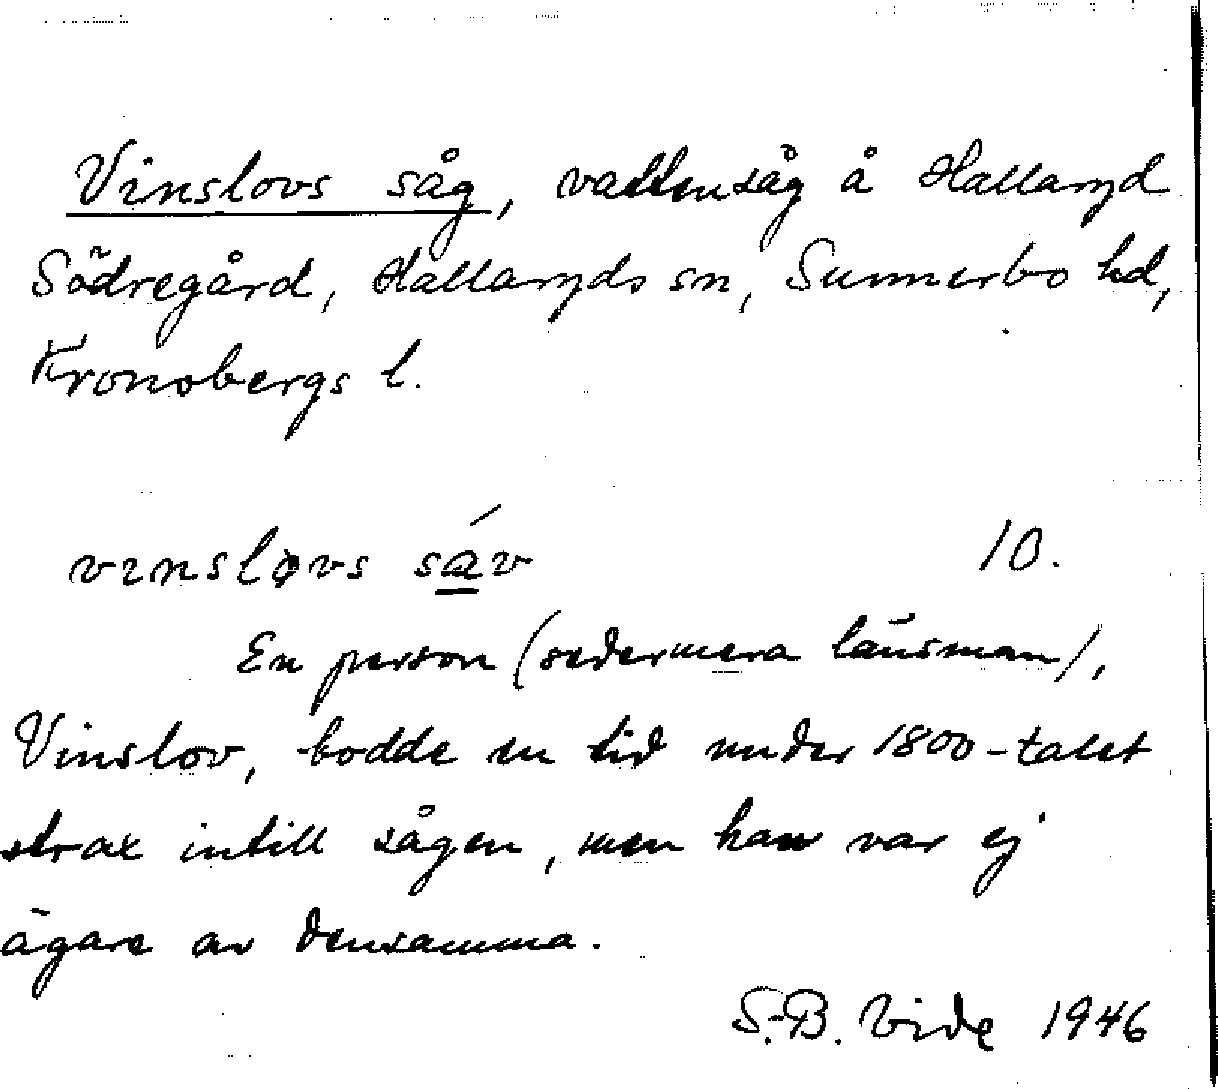 Vinslovs såg, vattensåg å Hallaryd
Södregård, Hallaryds sn, Sunnerbo hd,
Kronobergs l.
vɪnslovs sáv 10.
En person (sedermera länsman),
Vinslov, bodde en tid under 1800-talet
strax intill sågen, men han var ej
ägare av densamma.
S.-B. Vide 1946